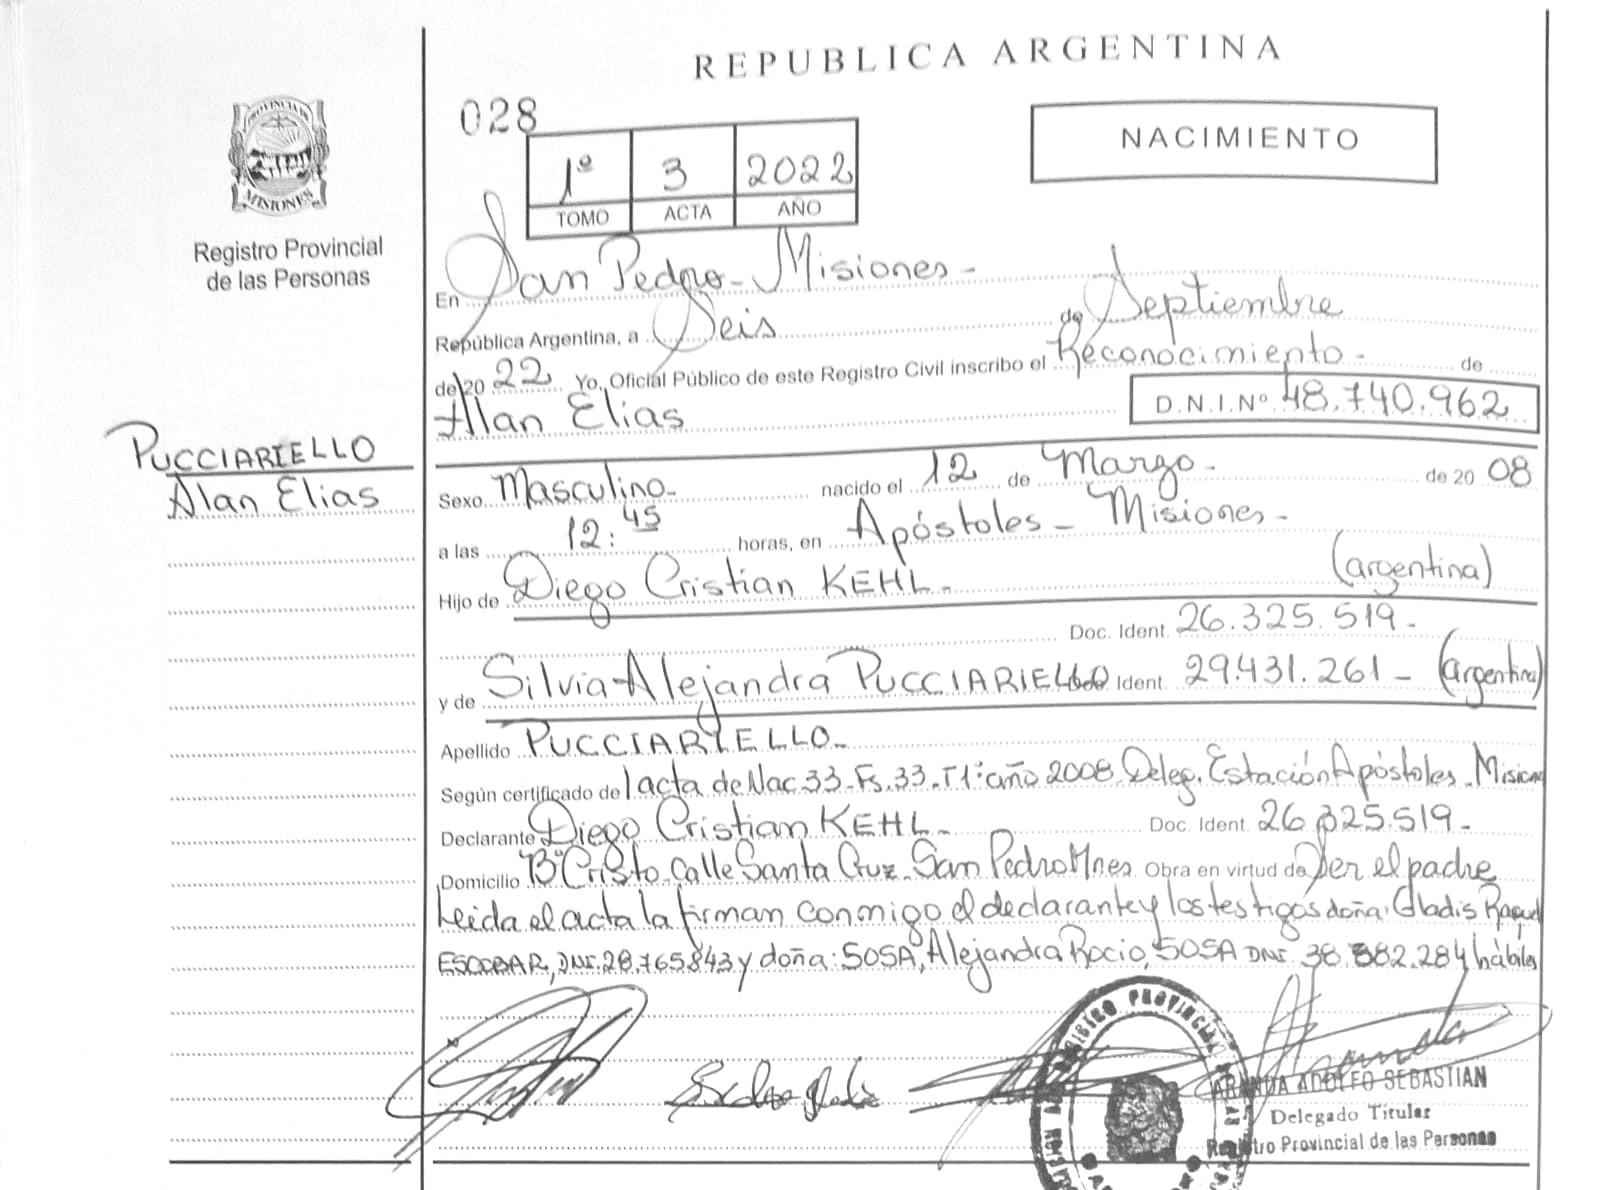 REPUBLICA ARGENTINA
028
NACIMIENTO
1º 3 2022
TOMO ACTA AÑO
PROVINCIA DE
MISIONES
Registro Provincial
de las Personas
En San Pedro - Misiones -
República Argentina, a Seis de Septiembre
de 20 22 Yo, Oficial Público de este Registro Civil inscribo el Reconocimiento - de
Alan Elias D.N.I.Nº 48.740.962
PUCCIARIELLO
Alan Elias
Sexo Masculino - nacido el 12 de Marzo - de 20 08
a las 12:45 horas, en Apóstoles - Misiones -
Hijo de Diego Cristian KEHL - (argentina)
Doc. Ident. 26.325.519 -
y de Silvia Alejandra PUCCIARIELLO Ident. 29.431.261 - (argentina)
Apellido PUCCIARIELLO -
Según certificado de acta de Nac. 33 - Fs. 33 - T1º año 2008. Deleg. Estación Apóstoles - Misiones
Declarante Diego Cristian KEHL - Doc. Ident. 26.325.519 -
Domicilio Bº Cristo - Calle Santa Cruz - San Pedro Mnes. Obra en virtud de Ser el padre
Leida el acta la firman conmigo el declarante y los testigos doña: Gladis Raquel
ESCOBAR, DNI. 28.765.843 y doña: SOSA, Alejandra Rocio, SOSA DNI. 38. 282.284 hábiles
REGISTRO PROVINCIAL DE LAS
ARANDA ADOLFO SEBASTIAN
Delegado Titular
Registro Provincial de las Personas